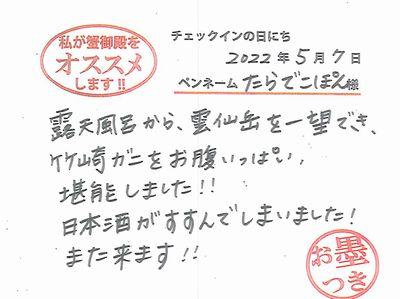 私が蟹御殿を
オススメ
します!!
チェックインの日にち
2022年5月7日
ペンネーム たらでこぽん様
露天風呂から、雲仙岳を一望でき、
竹崎ガニをお腹いっぱい、
堪能しました!!
日本酒がすすんでしまいました!
また来ます!!
お墨つき